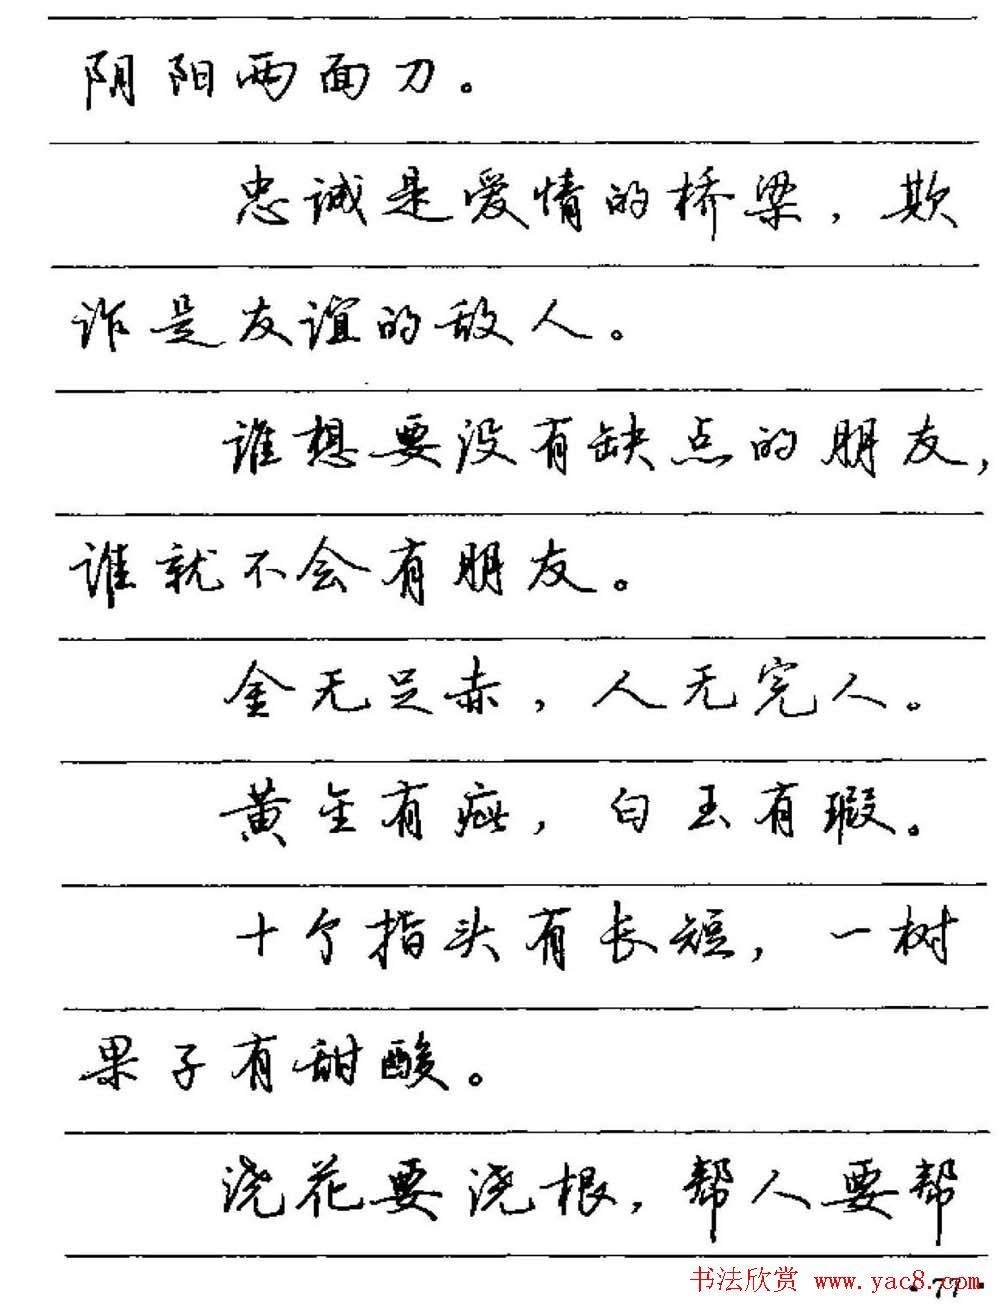 阴阳两面刀。
忠诚是爱情的桥梁，欺
诈是友谊的敌人。
谁想要没有缺点的朋友，
谁就不会有朋友。
金无足赤，人无完人。
黄金有疵，白玉有瑕。
十个指头有长短，一树
果子有甜酸。
浇花要浇根，帮人要帮
书法欣赏 www.yac8.com
·77·